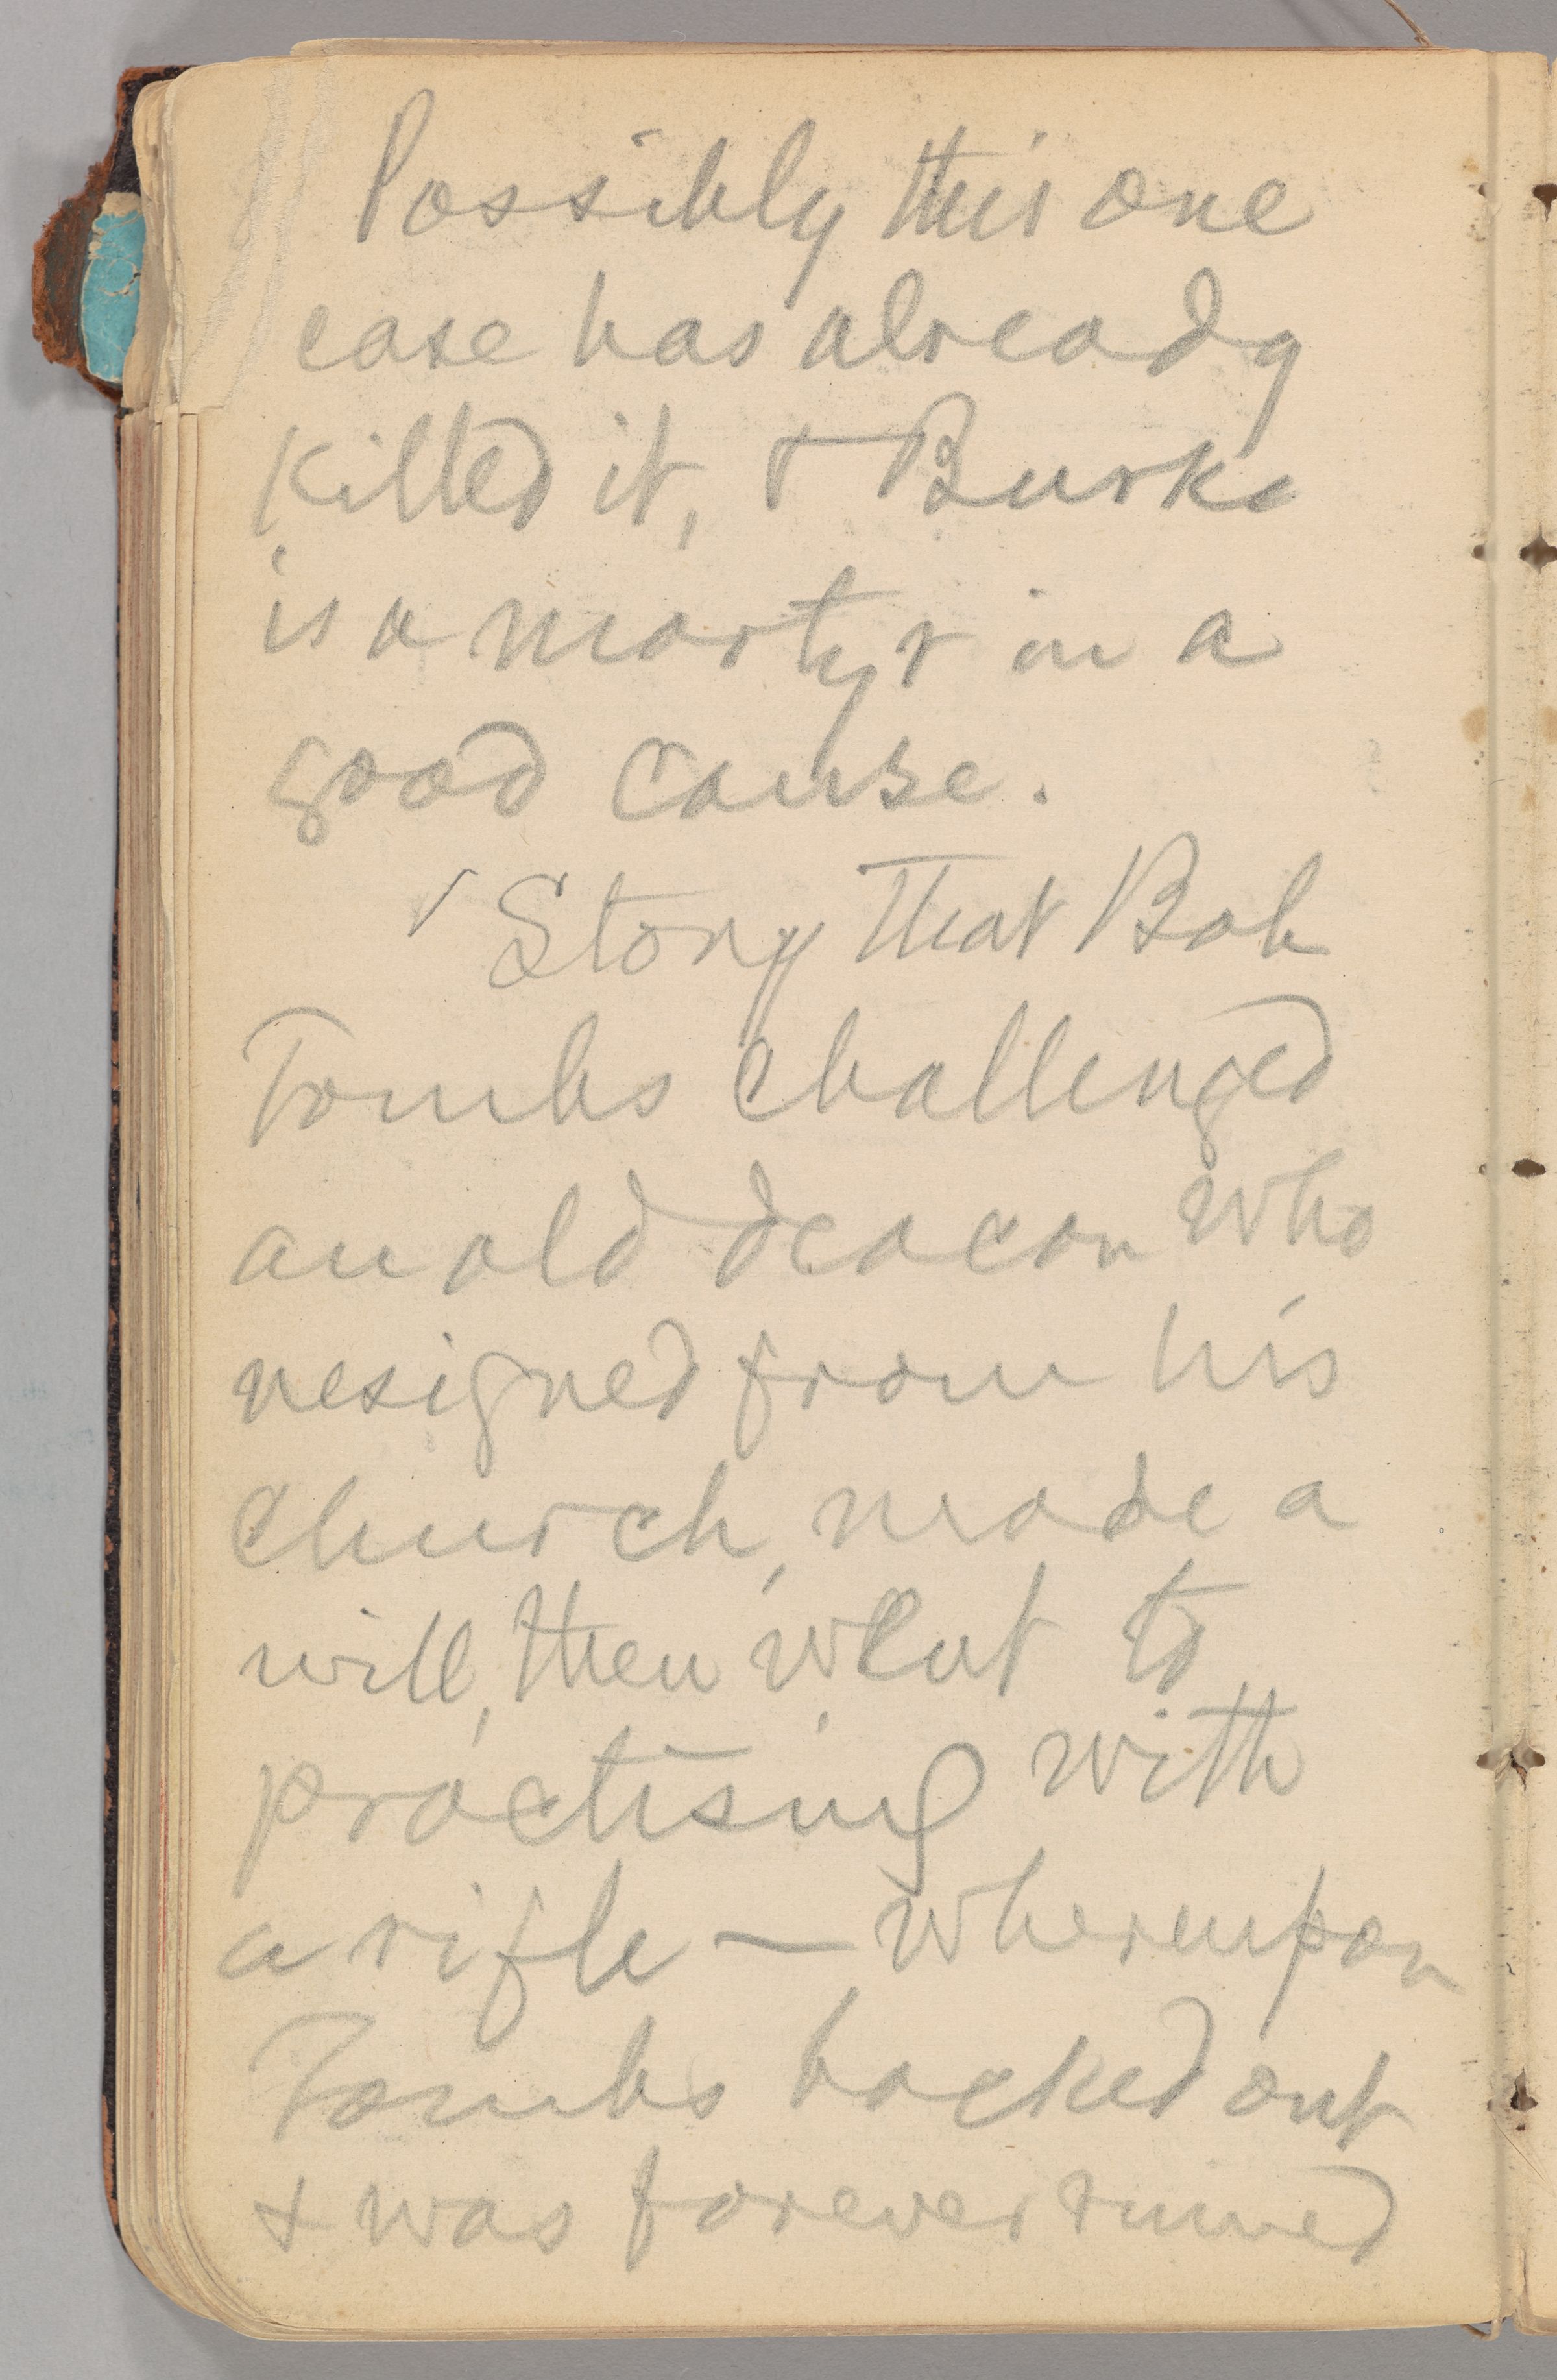 Possibly this one
case has already
killed it, & Burke
is a martyr in a
good cause.
Story that Bob
Toombs challenged
an old deacon who
resigned from his
church, made a
will, then went to
practising with
a rifle — whereupon
Toombs backed out
& was forever ruined